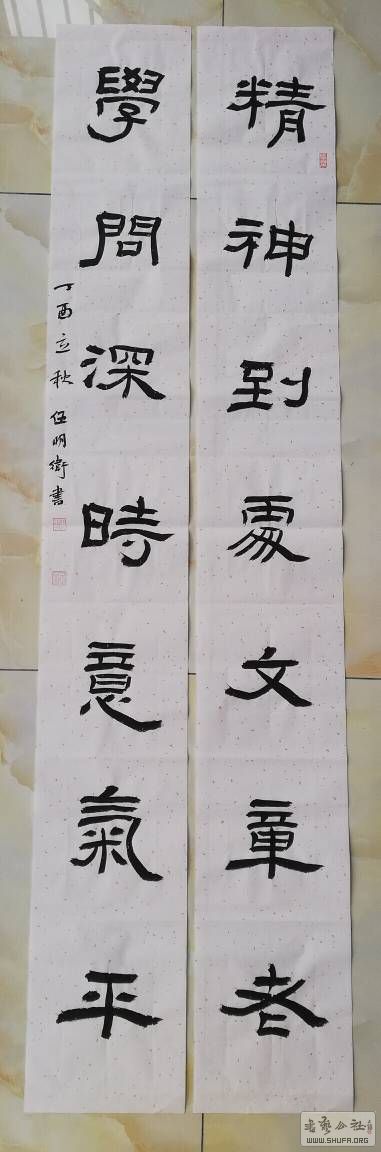 精神到處文章老
學問深時意氣平
丁酉立秋 伍明衛書
書藝公社
WWW.SHUFA.ORG